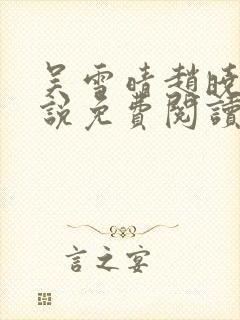 吴雪晴趙曉
說免費閱讀
言之宴